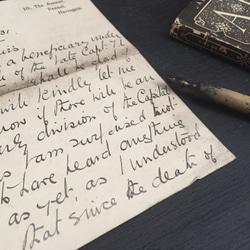 The Avenue,
Harrogate.
a beneficiary under
of the late Capt.
shall be glad
will kindly let me
know if there will be an
early division of the Capital
as I am surprised not
to have heard anything
as yet, as I understood
that since the death of
A